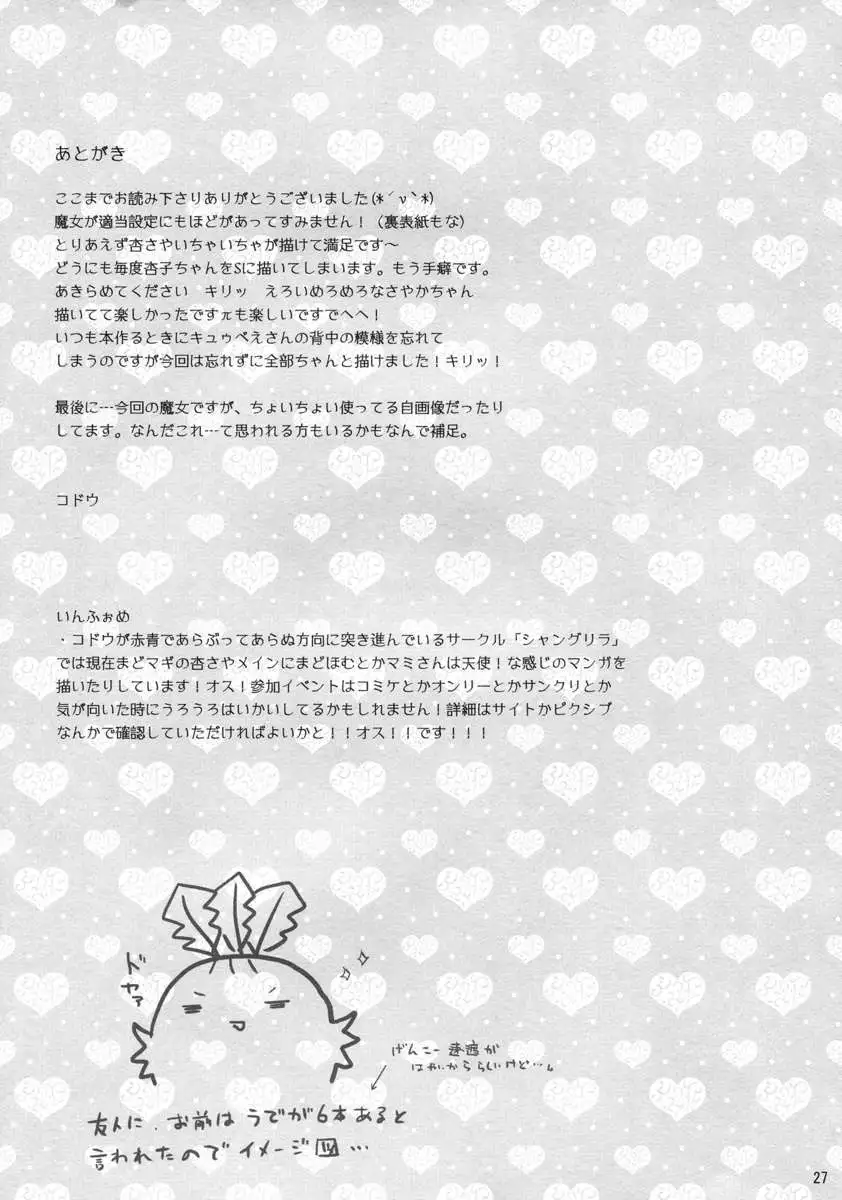 あとがき
ここまでお読み下さりありがとうございました(*´ν`*)
魔女が適当設定にもほどがあってすみません！（裏表紙もな）
とりあえず杏さやいちゃいちゃが描けて満足です～
どうにも毎度杏子ちゃんをSに描いてしまいます。もう手癖です。
あきらめてください　キリッ　えろいめろめろなさやかちゃん
描いてて楽しかったですπも楽しいですでへへ！
いつも本作るときにキュゥべえさんの背中の模様を忘れて
しまうのですが今回は忘れずに全部ちゃんと描けました！キリッ！
最後に---今回の魔女ですが、ちょいちょい使ってる自画像だったり
してます。なんだこれ---て思われる方もいるかもなんで補足。
コドウ
いんふぉめ
・コドウが赤青であらぶってあらぬ方向に突き進んでいるサークル「シャングリラ」
では現在まどマギの杏さやメインにまどほむとかマミさんは天使！な感じのマンガを
描いたりしています！オス！参加イベントはコミケとかオンリーとかサンクリとか
気が向いた時にうろうろはいかいしてるかもしれません！詳細はサイトかピクシブ
なんかで確認していただければよいかと！！オス！！です！！！
ドヤァ
げんこー速度が
はやいかららしいけど…。
友人に、お前はうでが6本あると
言われたのでイメージ図…
27